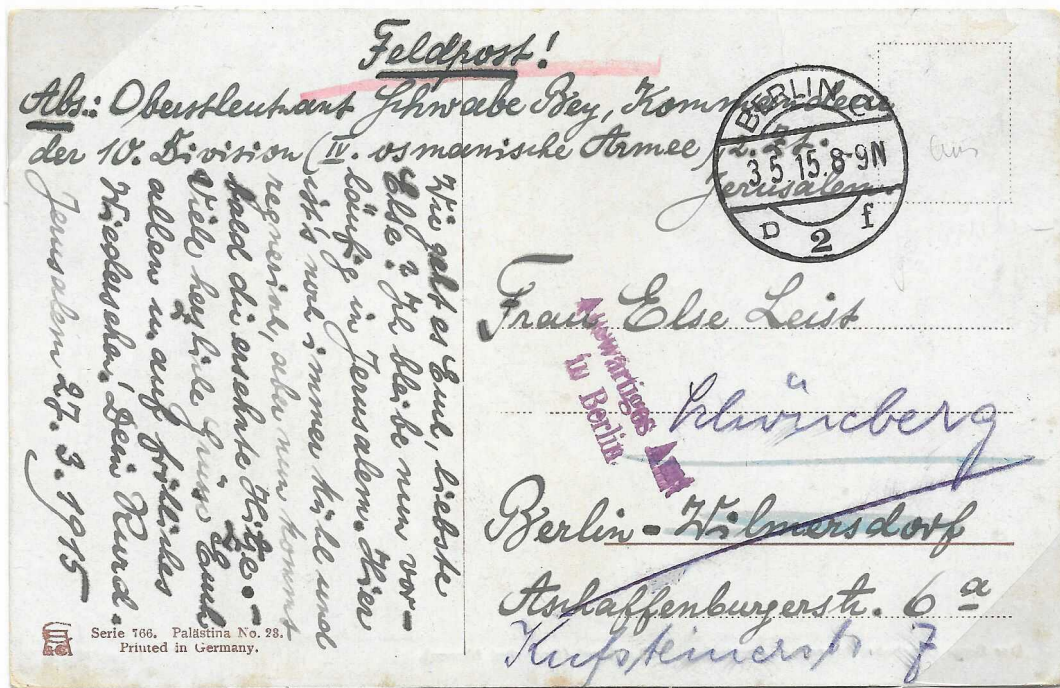 Feldpost!
Abs.: Oberstleutnant Schwabe Bey, Kommandeur
der 10. Division (IV. osmanische Armee) z. Zt.
Jerusalem.
BERLIN
3.5.15.8-9N
D 2 f
aus
Frau Else Leist
Auswärtiges Amt
in Berlin.
Schöneberg
Berlin-Wilmersdorf
Aschaffenburgerstr. 6 a
Kufsteinerstr. 7
Wie geht es Euch, liebste
Else? Ich bleibe nun vor-
läufig in Jerusalem. Hier
ist's noch immer kühl und
regnerisch, aber nun kommt
bald die ersehnte Hitze.-
Viele herzliche Grüße Euch
allen u. auf fröhliches
Wiedersehen! Dein Kurd.
Jerusalem 27.3.1915
Serie 766. Palästina No. 28.
Printed in Germany.